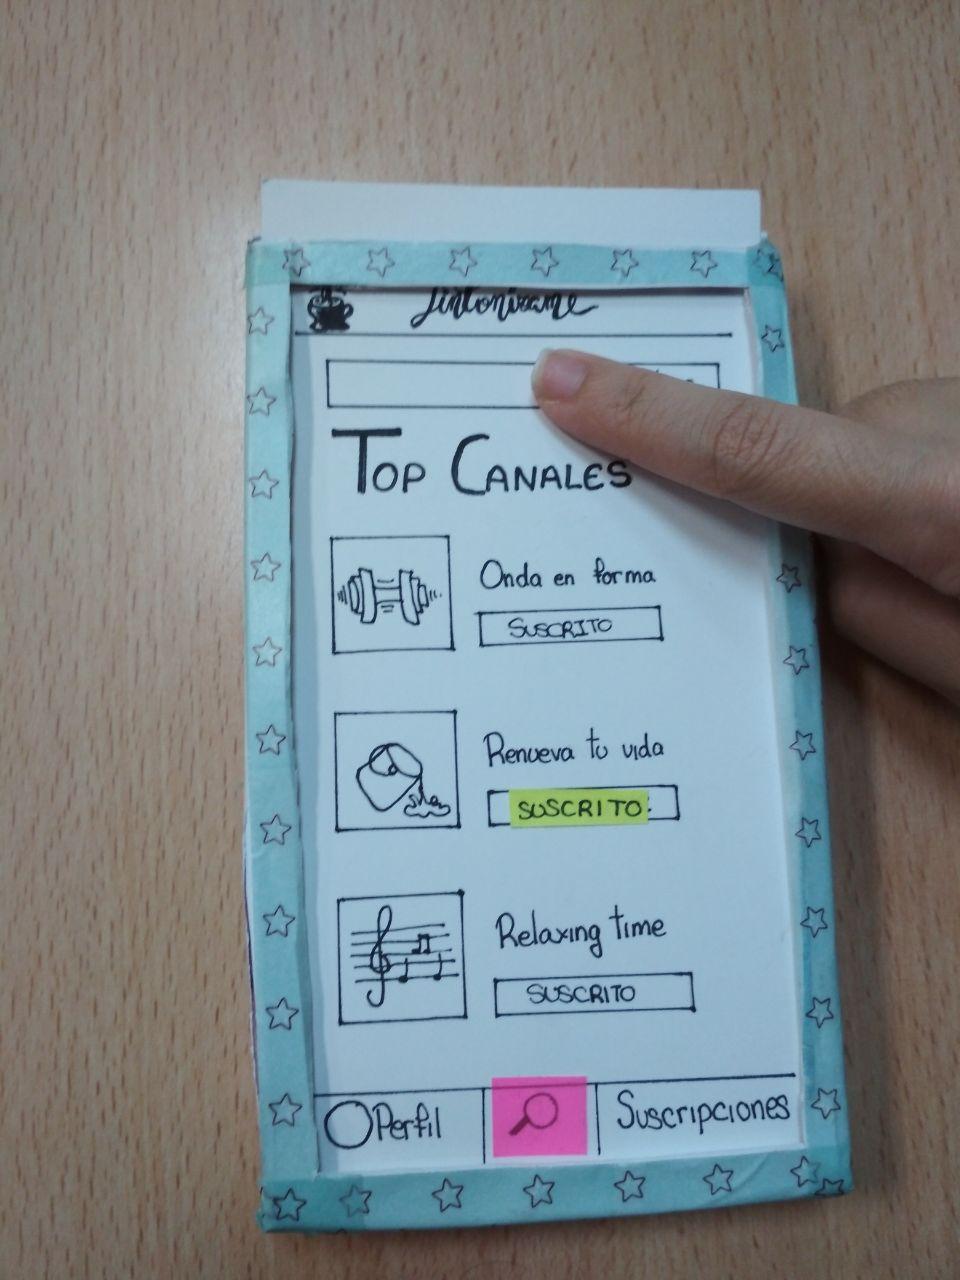 Sintonízame
TOP CANALES
Onda en forma
SUSCRITO
Renueva tu vida
SUSCRITO
Relaxing time
SUSCRITO
Perfil
Suscripciones